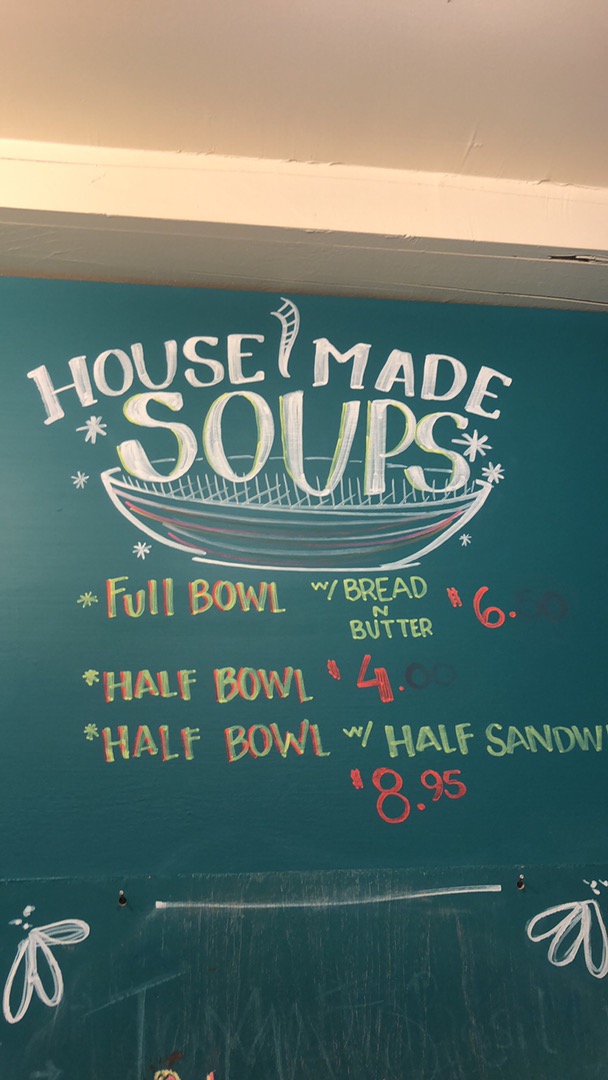 HOUSE MADE
SOUPS
* Full BOWL w/ BREAD N BUTTER $6.
* HALF BOWL $4.00
* HALF BOWL w/ HALF SANDWI
$8.95